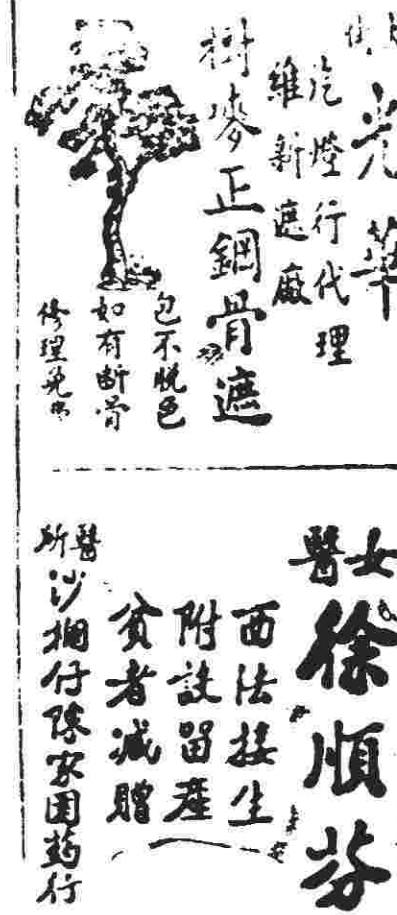 光華
汽燈行代理
維新遮廠
樹麥正鋼骨遮
包不脫色
如有斷骨
修理免
女醫
徐順芬
西法接生
附設留產
貧者減贈
醫所
沙欄仔陳家園葯行